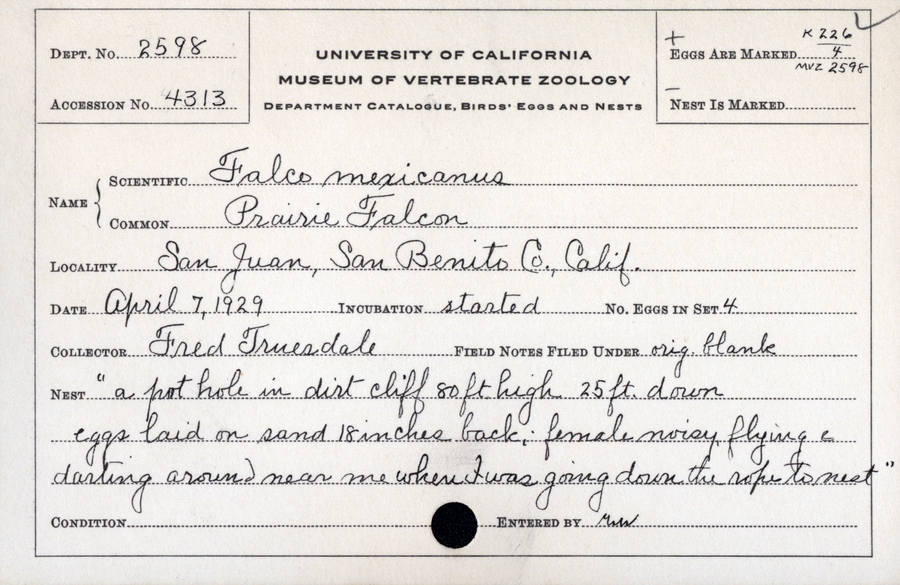 DEPT. No. 2598
ACCESSION No. 4313
UNIVERSITY OF CALIFORNIA
MUSEUM OF VERTEBRATE ZOOLOGY
DEPARTMENT CATALOGUE, BIRDS' EGGS AND NESTS
+
K 226
EGGS ARE MARKED 4
MVZ 2598
–
NEST IS MARKED
NAME
SCIENTIFIC Falco mexicanus
COMMON Prairie Falcon
LOCALITY San Juan, San Benito Co., Calif.
DATE April 7, 1929 INCUBATION started No. EGGS IN SET 4
COLLECTOR Fred Truesdale FIELD NOTES FILED UNDER orig. blank
NEST "a pot hole in dirt cliff 80 ft high 25 ft. down
eggs laid on sand 18 inches back; female noisy, flying &
darting around near me when I was going down the rope to nest"
CONDITION ENTERED BY